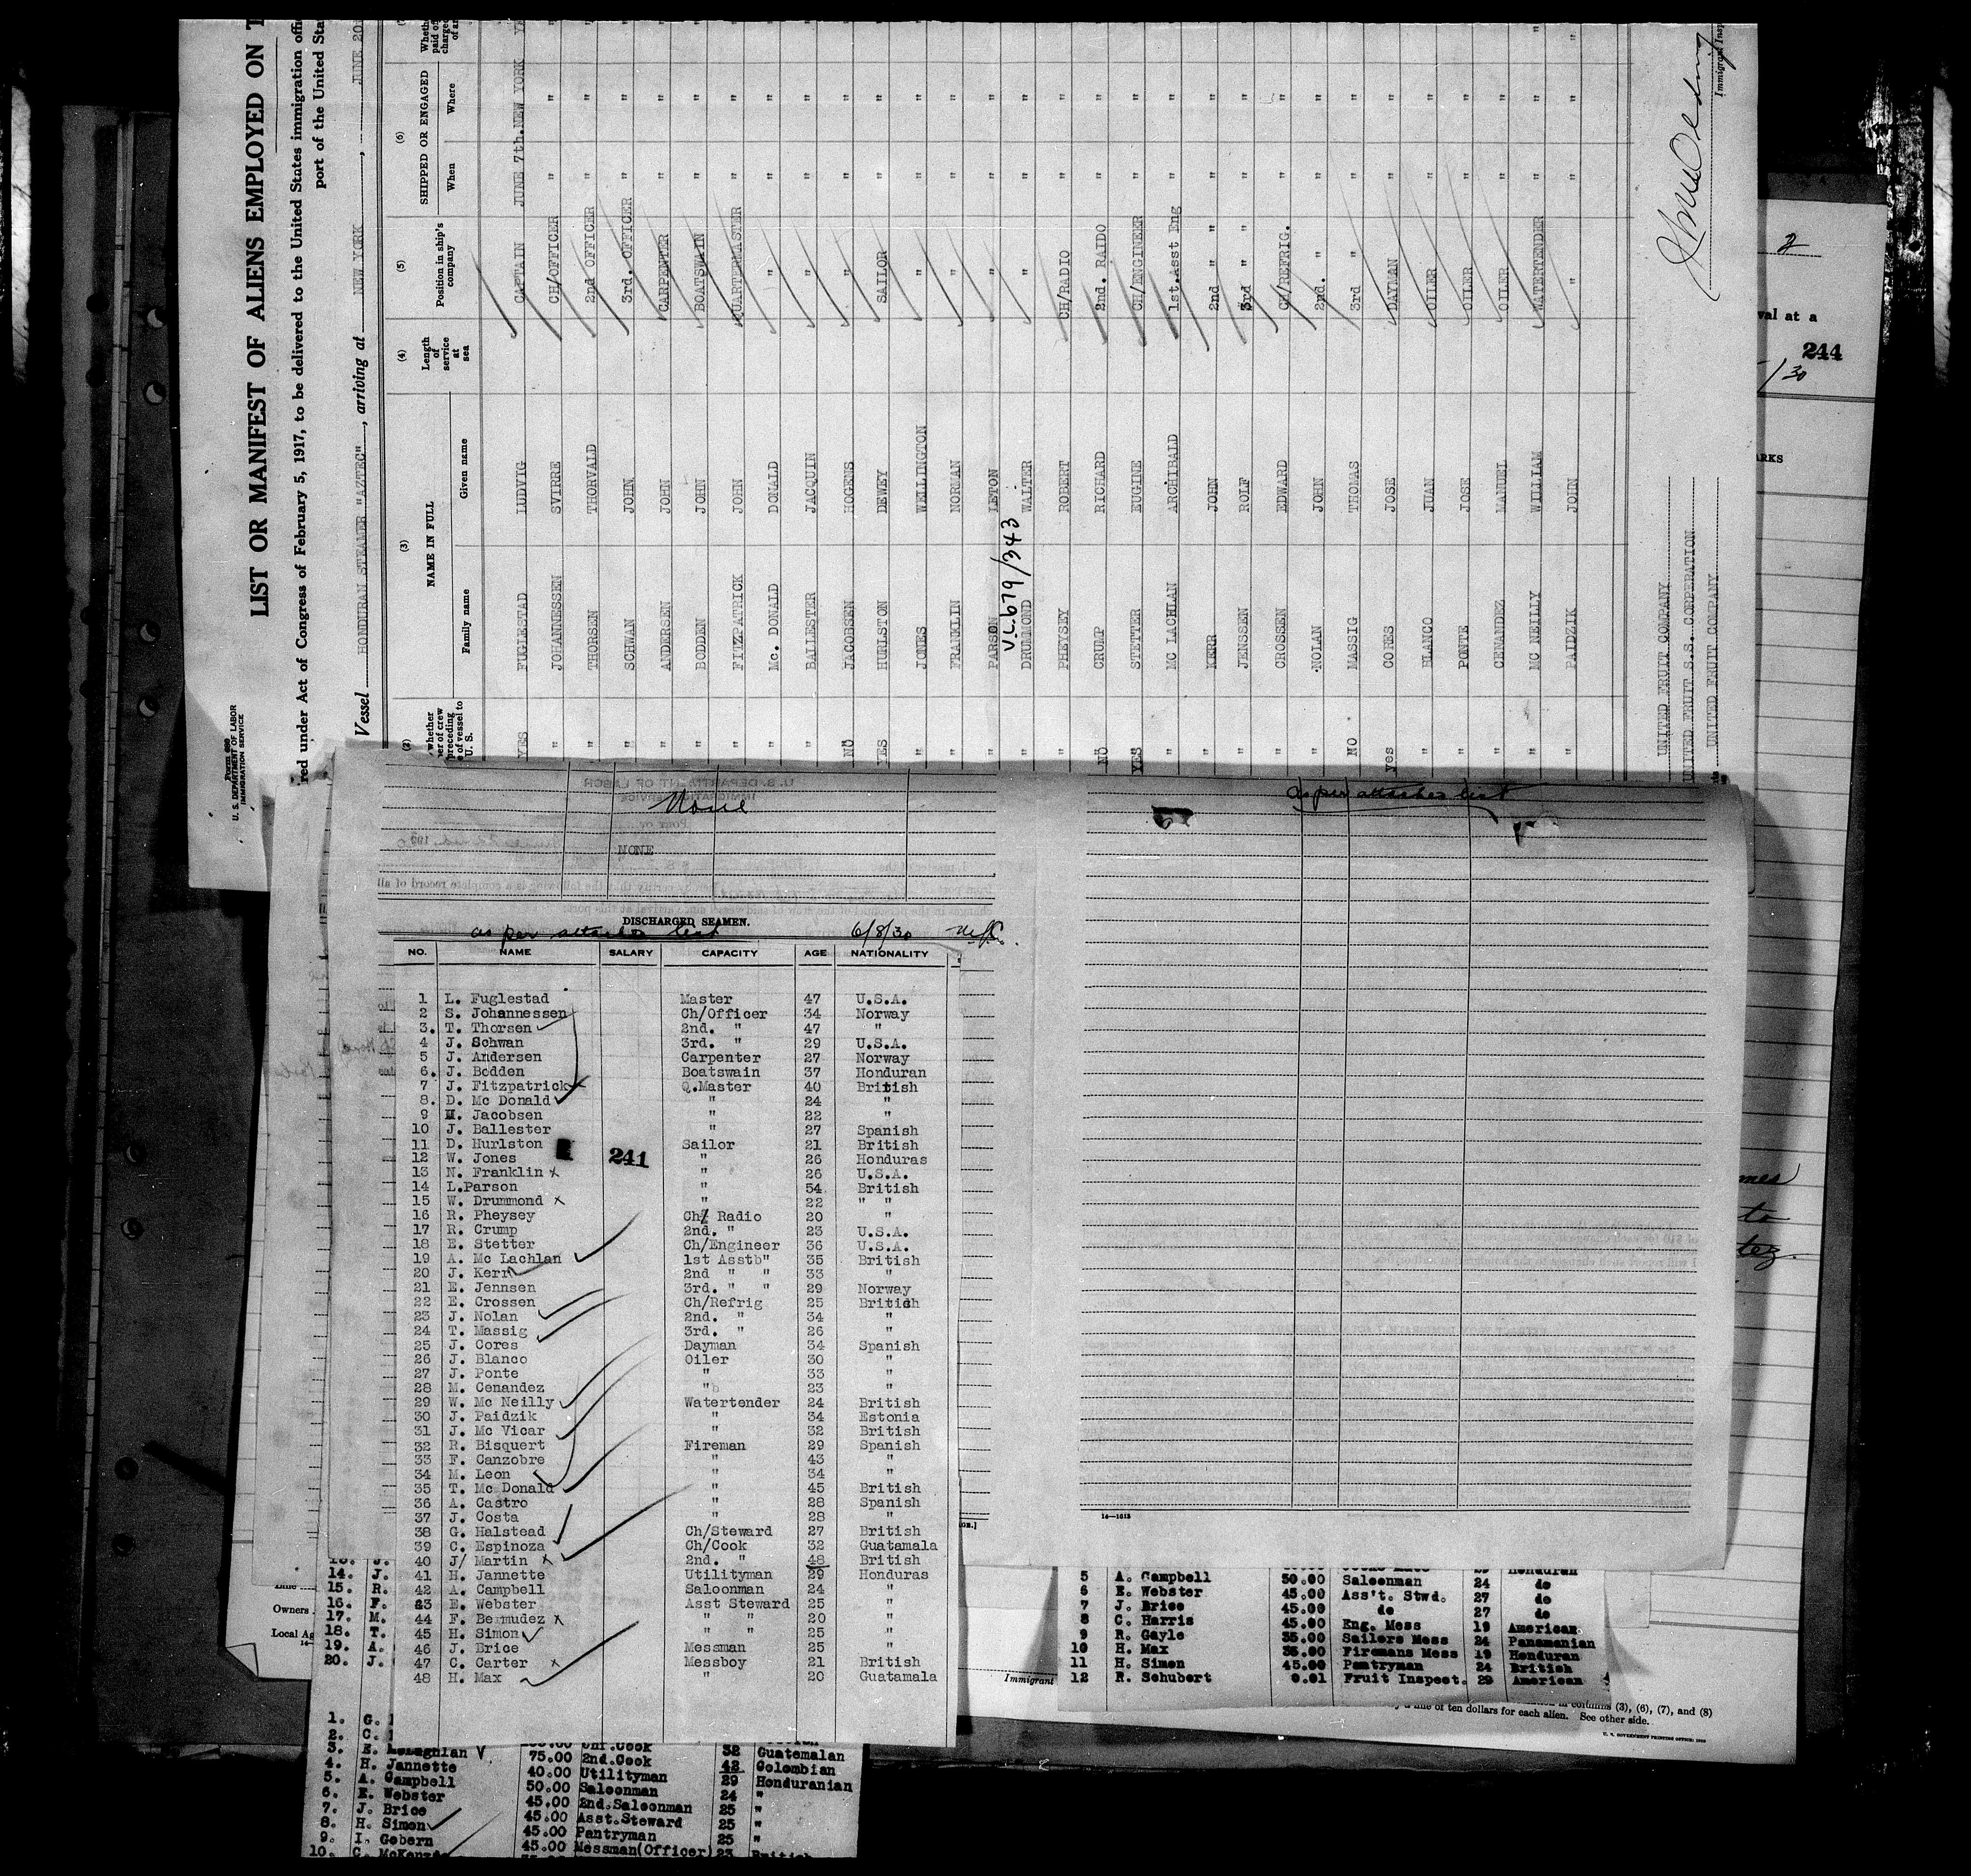 Form 680
U. S. DEPARTMENT OF LABOR
IMMIGRATION SERVICE
LIST OR MANIFEST OF ALIENS EMPLOYED ON T
red under Act of Congress of February 5, 1917, to be delivered to the United States immigration offi
port of the United Sta
Vessel HONDURAN STEAMER "AZTEC", arriving at NEW YORK, JUNE 20
(2) (3) (4) (5) (6)
whether
er of crew
preceding
e of vessel to
U. S.
NAME IN FULL
Family name Given name
Length
of
service
at
sea
Position in ship's
company
SHIPPED OR ENGAGED
When Where
YES FUGLESTAD LUDVIG CAPTAIN JUNE 7th. NEW YORK YE
" JOHANNESSEN SVIRRE CH/OFFICER " "
" THORSEN THORVALD 2nd OFFICER " "
" SCHWAN JOHN 3rd. OFFICER " "
" ANDERSEN JOHN CARPENTER " "
" BODDEN JOHN BOATSWAIN " "
" FITZPATRICK JOHN QUARTERMASTER " "
" Mc. DONALD DONALD " " "
" BALLESTER JACQUIN " " "
NO JACOBSEN HOGENS " " "
YES HURLSTON DEWEY SAILOR " "
" JONES WELLINGTON " " "
" FRANKLIN NORMAN " " "
" PARSON LETON " " "
V.L. 679/343
" DRUMMOND WALTER " " "
" PHEYSEY ROBERT CH/RADIO " "
NO CRUMP RICHARD 2nd. RAIDO " "
YES STETTER EUGINE CH/ENGINEER " "
" MC LACHLAN ARCHIBALD 1st.Asst Eng " "
" KERR JOHN 2nd " " " "
" JENSSEN ROLF 3rd " " " "
" CROSSEN EDWARD CH/REFRIG. " "
" NOLAN JOHN 2nd. " " "
NO MASSIG THOMAS 3rd " " "
yes CORES JOSE DAYMAN " "
" BLANCO JUAN OILER " "
" PONTE JOSE OILER " "
" CENANDEZ MANUEL OILER " "
" MC NEILLY WILLIAM WATERTENDER " "
" PAIDZIK JOHN " " "
UNITED FRUIT COMPANY
UNITED FRUIT S.S. CORPERATION
UNITED FRUIT COMPANY
Immigrant Insp
2
val at a
244
/30
ARKS
None
NONE
as per attached list
DISCHARGED SEAMEN.
as per attached list 6/8/30
NO. NAME SALARY CAPACITY AGE NATIONALITY
1 L. Fuglestad Master 47 U.S.A.
2 S. Johannessen Ch/Officer 34 Norway
3. T. Thorsen 2nd. " 47 "
4 J. Schwan 3rd. " 29 U.S.A.
5 J. Andersen Carpenter 27 Norway
6. J. Bodden Boatswain 37 Honduran
7 J. Fitzpatrick Q.Master 40 British
8. D. Mc Donald " 24 "
9 H. Jacobsen " 22 "
10 J. Ballester " 27 Spanish
11 D. Hurlston Sailor 21 British
241
12 W. Jones " 26 Honduras
13 N. Franklin x " 26 U.S.A.
14 L.Parson " 54 British
15 W. Drummond x " 22 " "
16 R. Pheysey Ch/ Radio 20 "
17 R. Crump 2nd. " 23 U.S.A.
18 E. Stetter Ch/Engineer 36 U.S.A.
19 A. Mc Lachlan 1st Asstb" 35 British
20 J. Kerr 2nd " " 33 "
21 E. Jennsen 3rd. " " 29 Norway
22 E. Crossen Ch/Refrig 25 British
23 J. Nolan 2nd. " 34 "
24 T. Massig 3rd. " 26 "
25 J. Cores Dayman 34 Spanish
26 J. Blanco Oiler 30 "
27 J. Ponte " 33 "
28 M. Cenandez " 23 "
29 W. Mc Neilly Watertender 24 British
30 J. Paidzik " 34 Estonia
31 J. Mc Vicar " 32 British
32 R. Bisquert Fireman 29 Spanish
33 F. Canzobre " 43 "
34 M. Leon " 34 "
35 T. Mc Donald " 45 British
36 A. Castro " 28 Spanish
37 J. Costa " 28 "
38 G. Halstead Ch/Steward 27 British
39 C. Espinoza Ch/Cook 32 Guatamala
40 J/ Martin x 2nd. " 48 British
41 H. Jannette Utilityman 29 Honduras
42 A. Campbell Saloonman 24 "
43 E. Webster Asst Steward 25 "
44 F. Bermudez x " " 20 "
45 H. Simon " " 25 "
46 J. Brice Messman 25 "
47 C. Carter x Messboy 21 British
48 H. Max " 20 Guatamala
14—1613
14. J.
15. R.
16. F.
17. M.
18. T.
19. A.
20. J.
Owners
Local Ag
Immigrant
5 A. Campbell 50.00 Saloonman 24 do
6 E. Webster 45.00 Ass't. Stwd. 27 do
7 J. Brice 45.00 do 27 do
8 C. Harris 45.00 Eng. Mess 19 American
9 R. Gayle 35.00 Sailors Mess 24 Panamanian
10 H. Max 35.00 Firemans Mess 19 Honduran
11 H. Simon 45.00 Pantryman 24 British
12 R. Schubert 0.01 Fruit Inspect. 29 American
in columns (3), (6), (7), and (8)
a fine of ten dollars for each alien. See other side.
U. S. GOVERNMENT PRINTING OFFICE
1. G.
2. C. Chf.Cook 32 Guatemalan
3. E. McLaghlan 75.00 2nd.Cook 42 Colombian
4. H. Jannette 40.00 Utilityman 29 Honduranian
5. A. Campbell 50.00 Saloonman 24 "
6. E. Webster 45.00 2nd.Saloonman 25 "
7. J. Brice 45.00 Asst.Steward 25 "
8. H. Simon 45.00 Pantryman 25 "
9. I. Gobern 45.00 Messman(Officer) 23
10. C. McKenz